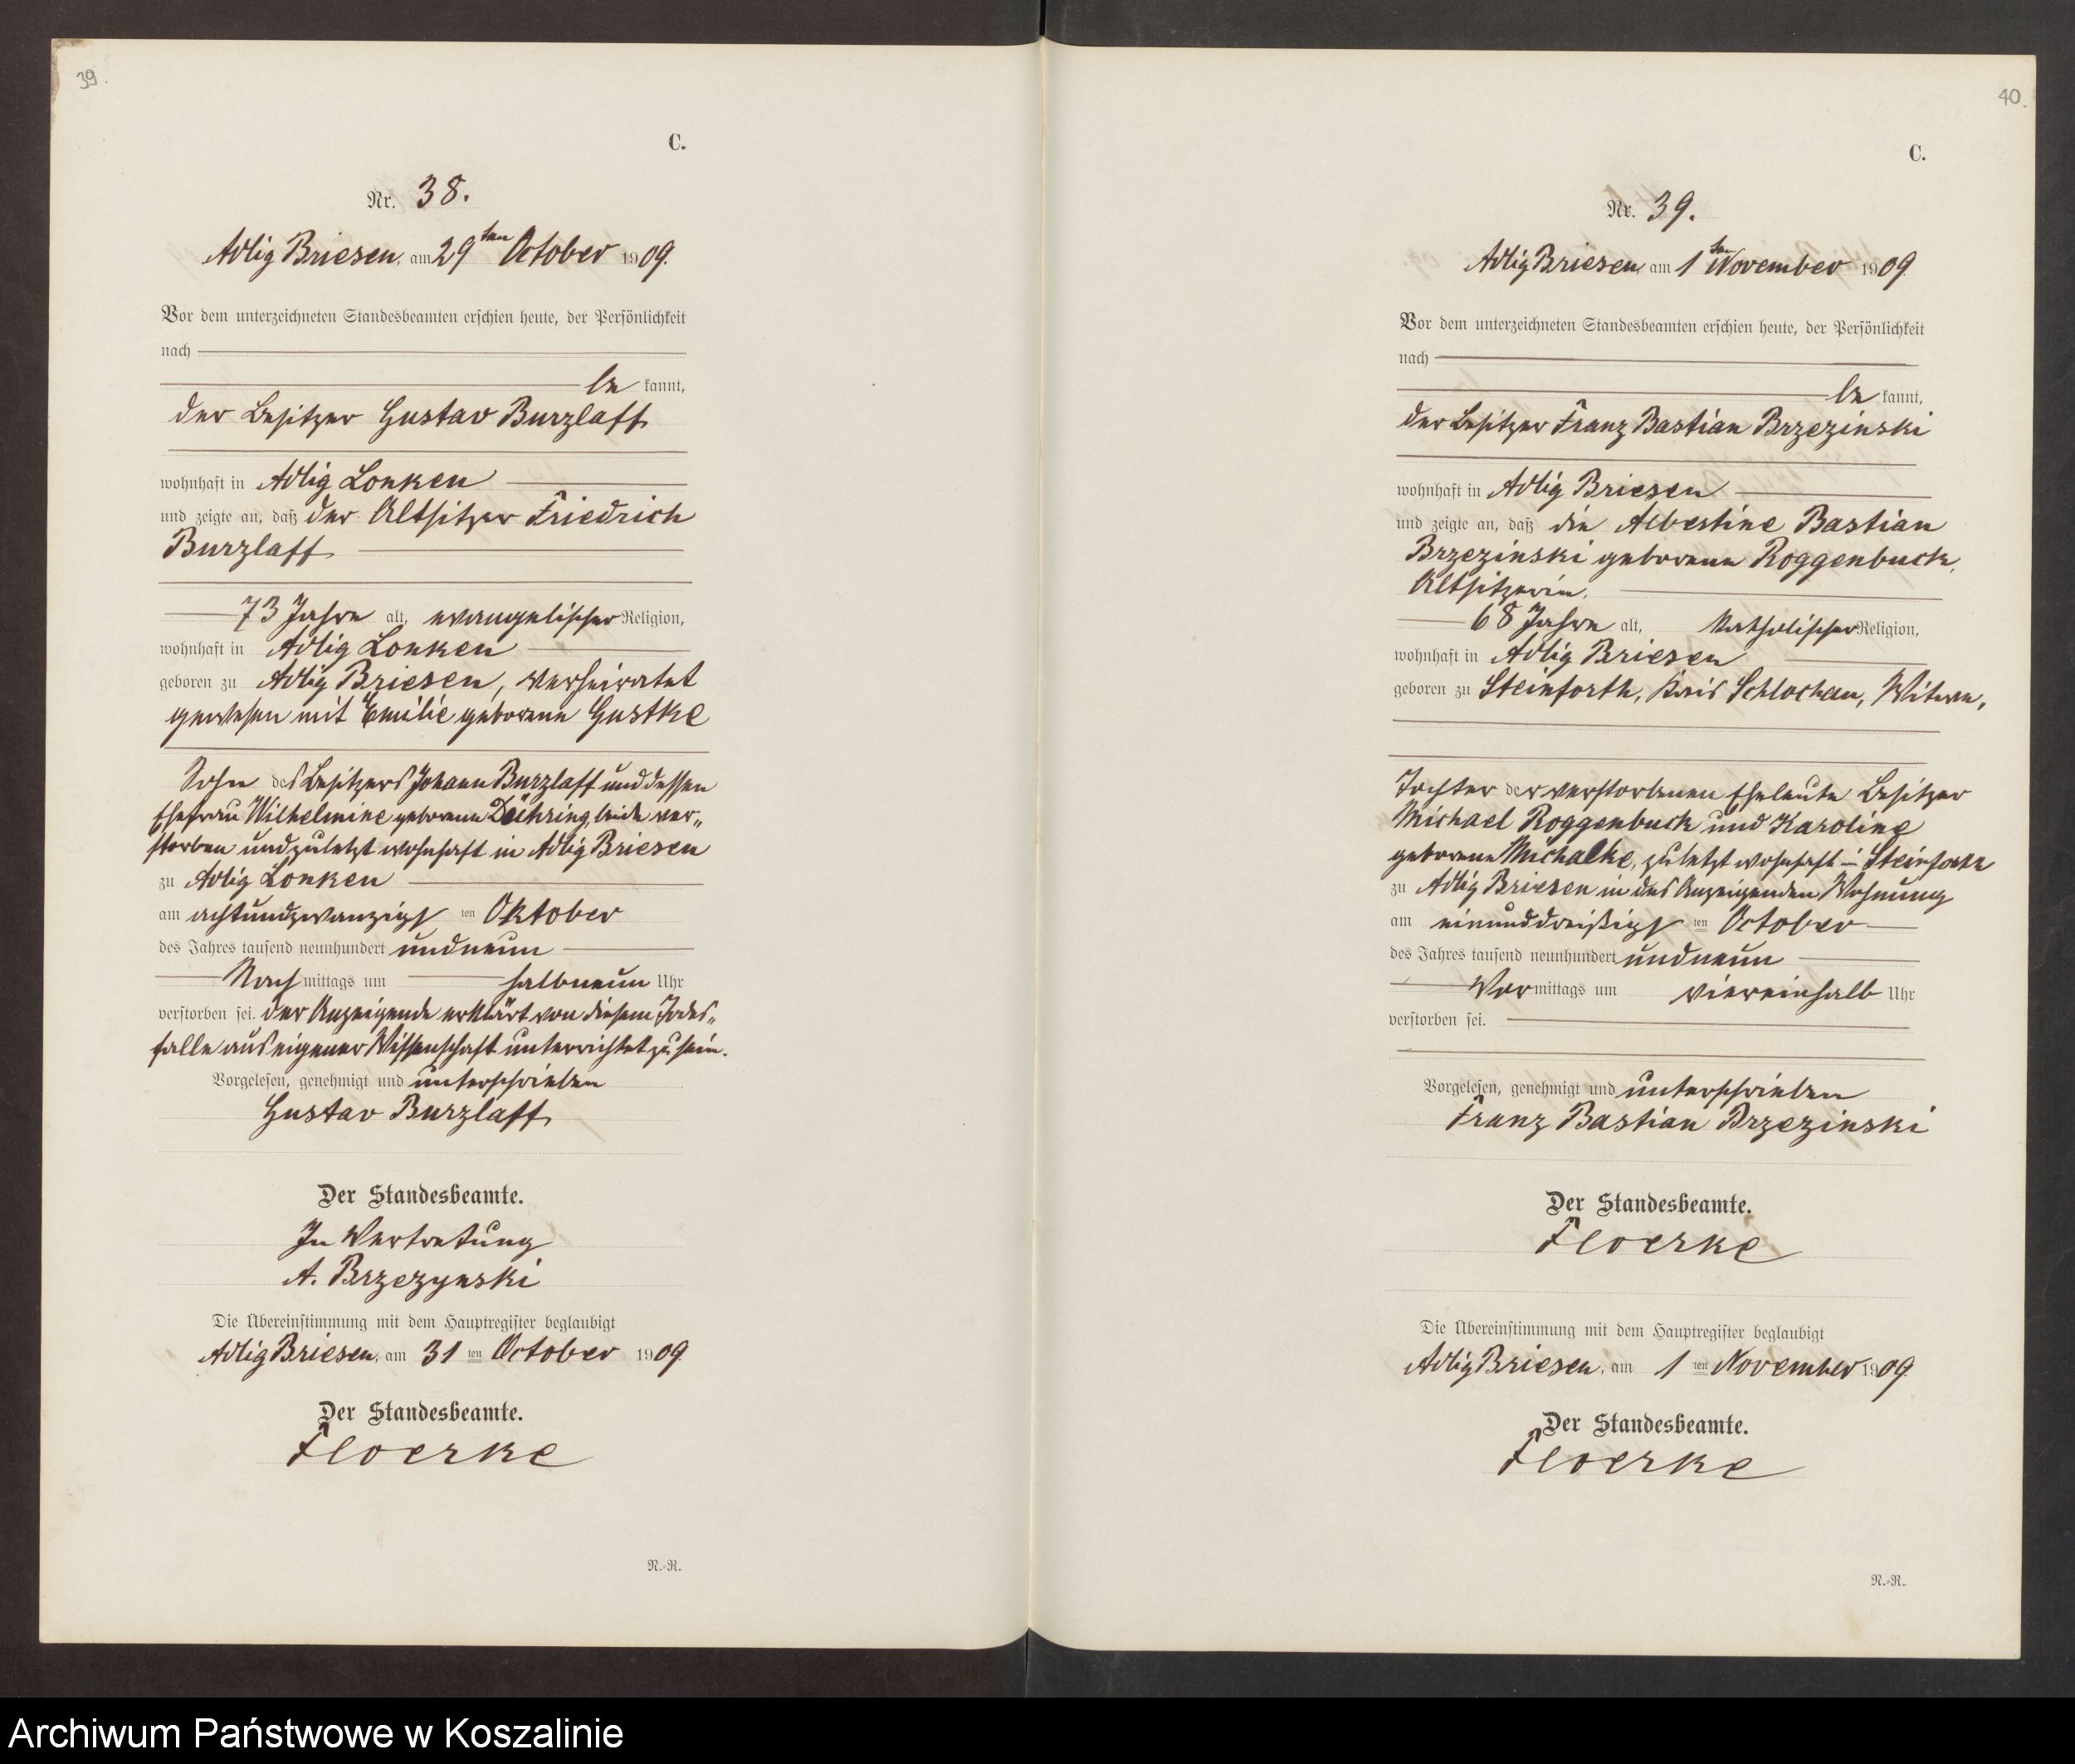 39.
C.
Nr. 38.
Adlig Briesen, am 29ten October 1909.
Vor dem unterzeichneten Standesbeamten erschien heute, der Persönlichkeit
nach
be kannt,
der Besitzer Gustav Burzlaff
wohnhaft in Adlig Lonken
und zeigte an, daß der Altsitzer Friedrich
Burzlaff
73 Jahre alt, evangelischer Religion,
wohnhaft in Adlig Lonken
geboren zu Adlig Briesen, verheiratet
gewesen mit Emilie geborene Gustke
Sohn des Besitzers Johann Burzlaff und dessen
Ehefrau Wilhelmine geborene beide ver„
storben und zuletzt wohnhaft in Adlig Briesen
zu Adlig Lonken
am achtundzwanzigs ten Oktober
des Jahres tausend neunhundert undneun
Nach mittags um halbneun Uhr
verstorben sei. Der Anzeigende erklärt von diesem Todes„
falle aus eigener Wissenschaft unterrichtet zu sein.
Vorgelesen, genehmigt und unterschrieben
Gustav Burzlaff
Der Standesbeamte.
In Vertretung
A. Brzezynski
Die Übereinstimmung mit dem Hauptregister beglaubigt
Adlig Briesen, am 31 ten October 1909.
Der Standesbeamte.
Floerke
N.-R.
40.
C.
Nr. 39.
Adlig Briesen, am 1ten November 1909.
Vor dem unterzeichneten Standesbeamten erschien heute, der Persönlichkeit
nach
be kannt,
der Besitzer Franz Bastian Brzezinski
wohnhaft in Adlig Briesen
und zeigte an, daß die Albertine Bastian
Brzezinski geborene Roggenbuck,
Altsitzerin,
68 Jahre alt, katholischer Religion,
wohnhaft in Adlig Briesen
geboren zu Steinforth, Kreis Schlochau, Witwe,
Tochter der verstorbenen Eheleute Besitzer
Michael Roggenbuck und Karoline
geborene Michalke, zuletzt wohnhaft in Steinforth
zu Adlig Briesen in des Anzeigenden Wohnung
am einunddreißigs ten October
des Jahres tausend neunhundert undneun
Vor mittags um viereinhalb Uhr
verstorben sei.
Vorgelesen, genehmigt und unterschrieben
Franz Bastian Brzezinski
Der Standesbeamte.
Floerke
Die Übereinstimmung mit dem Hauptregister beglaubigt
Adlig Briesen, am 1 ten November 1909.
Der Standesbeamte.
Floerke
N.-R.
Archiwum Państwowe w Koszalinie